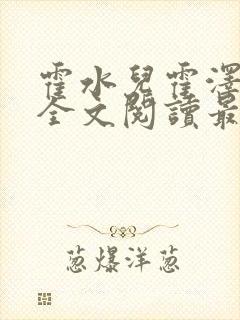 霍水兒霍澤
全文閱讀最
葱爆洋葱